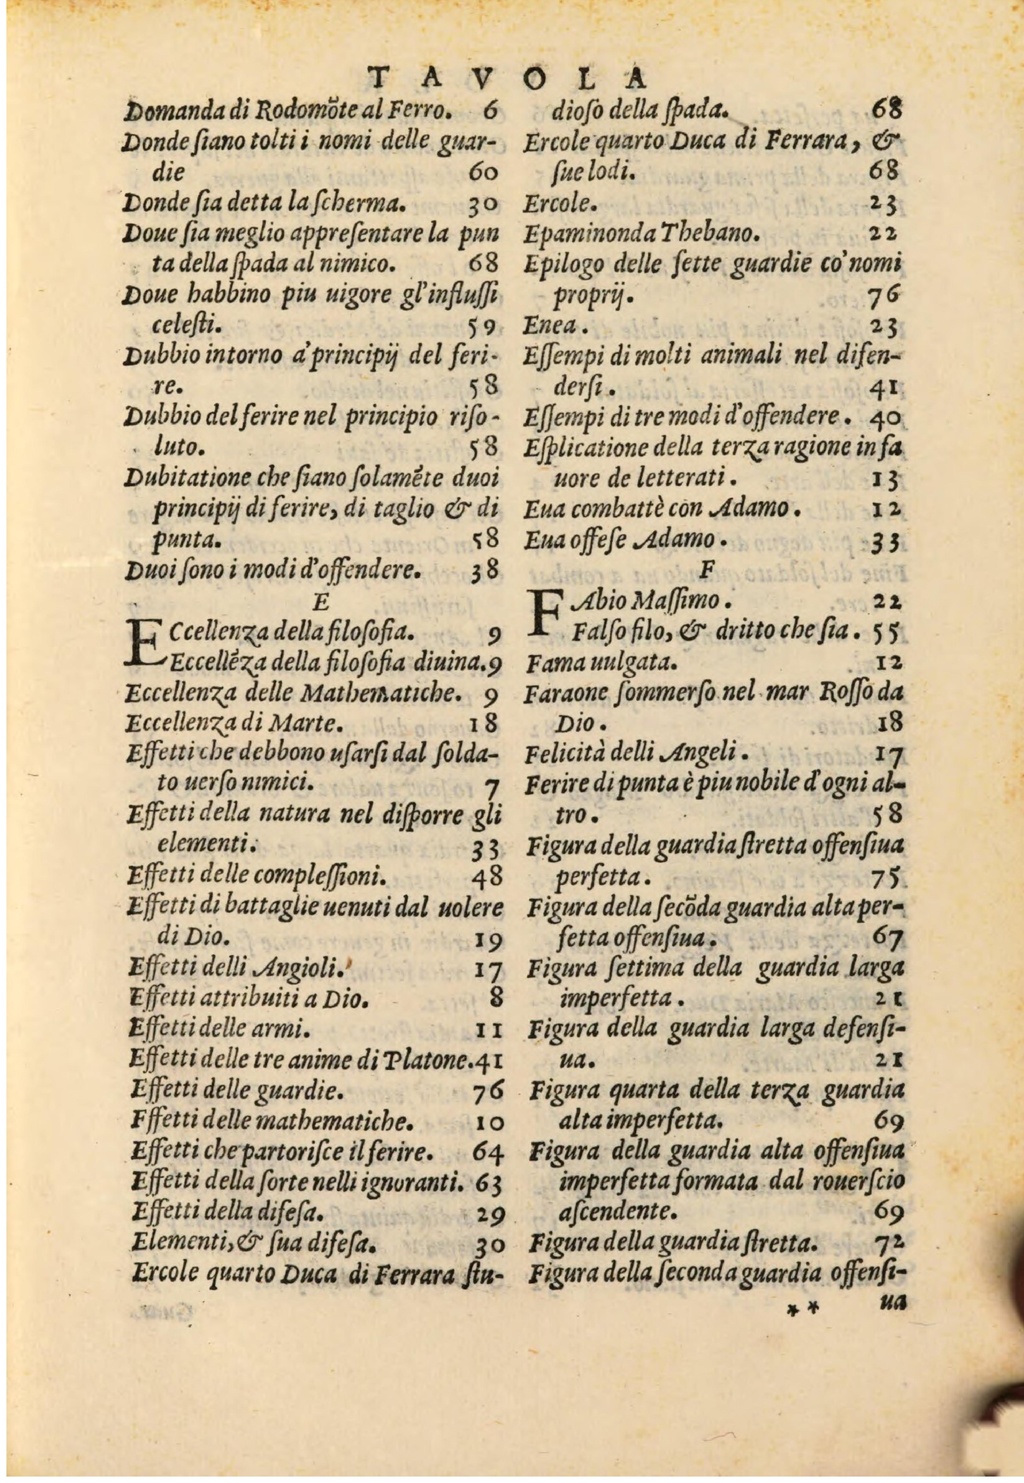 TAVOLA
Domanda di Rodomōte al Ferro. 6
Donde ſiano tolti i nomi delle guar-
die 60
Donde ſia detta la ſcherma. 30
Doue ſia meglio appreſentare la pun
ta della ſpada al nimico. 68
Doue habbino piu uigore gl'influſſi
celeſti. 59
Dubbio intorno a' principij del feri-
re. 58
Dubbio del ferire nel principio riſo-
luto. 58
Dubitatione che ſiano ſolamēte duoi
principij di ferire, di taglio & di
punta. 58
Duoi ſono i modi d'offendere. 38
E
ECcellenza della filoſofia. 9
Eccellēza della filoſofia diuina. 9
Eccellenza delle Mathematiche. 9
Eccellenza di Marte. 18
Effetti che debbono uſarſi dal ſolda-
to uerſo nimici. 7
Effetti della natura nel diſporre gli
elementi. 33
Effetti delle compleſſioni. 48
Effetti di battaglie uenuti dal uolere
di Dio. 19
Effetti delli Angioli. 17
Effetti attribuiti a Dio. 8
Effetti delle armi. 11
Effetti delle tre anime di Platone. 41
Effetti delle guardie. 76
Fffetti delle mathematiche. 10
Effetti che partoriſce il ferire. 64
Effetti della ſorte nelli ignoranti. 63
Effetti della difeſa. 29
Elementi, & ſua difeſa. 30
Ercole quarto Duca di Ferrara ſtu-
dioſo della ſpada. 68
Ercole quarto Duca di Ferrara, &
ſue lodi. 68
Ercole. 23
Epaminonda Thebano. 22
Epilogo delle ſette guardie co' nomi
proprij. 76
Enea. 23
Eſſempi di molti animali nel difen-
derſi. 41
Eſſempi di tre modi d'offendere. 40
Eſplicatione della terza ragione in fa
uore de letterati. 13
Eua combattè con Adamo. 12
Eua offeſe Adamo. 33
F
FAbio Maſſimo. 22
Falſo filo, & dritto che ſia. 55
Fama uulgata. 12
Faraone ſommerſo nel mar Roſſo da
Dio. 18
Felicità delli Angeli. 17
Ferire di punta è piu nobile d'ogni al-
tro. 58
Figura della guardia ſtretta offenſiua
perfetta. 75
Figura della ſecōda guardia alta per-
fetta offenſiua. 67
Figura ſettima della guardia larga
imperfetta. 21
Figura della guardia larga defenſi-
ua. 21
Figura quarta della terza guardia
alta imperfetta. 69
Figura della guardia alta offenſiua
imperfetta formata dal rouerſcio
aſcendente. 69
Figura della guardia ſtretta. 72
Figura della ſeconda guardia offenſi-
** ua